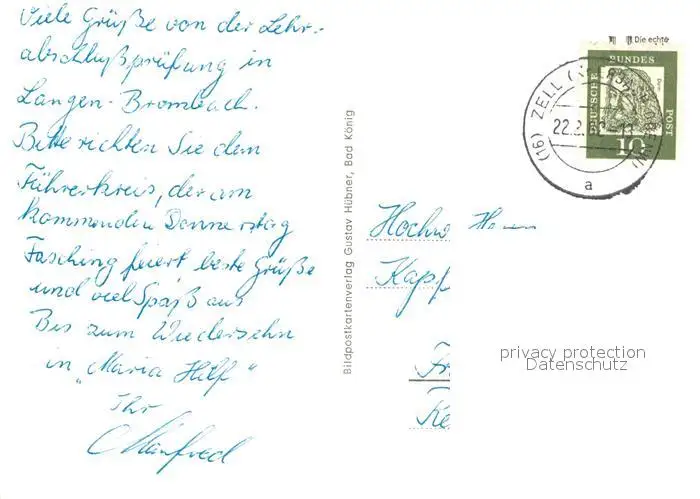 Viele Grüße von der Lehr-
abschlußprüfung in
Langen-Brombach.
Bitte richten Sie dem
Führerkreis, der am
kommenden Donnerstag
Fasching feiert beste Grüße
und viel Spaß aus
Bis zum Wiedersehn
in „Maria Hilf"
Ihr
Manfred
Bildpostkartenverlag Gustav Hübner, Bad König
Die echte
DEUTSCHE BUNDESPOST
10
(16) ZELL
22.2.
a
Hochw
Kapf
privacy protection
Datenschutz